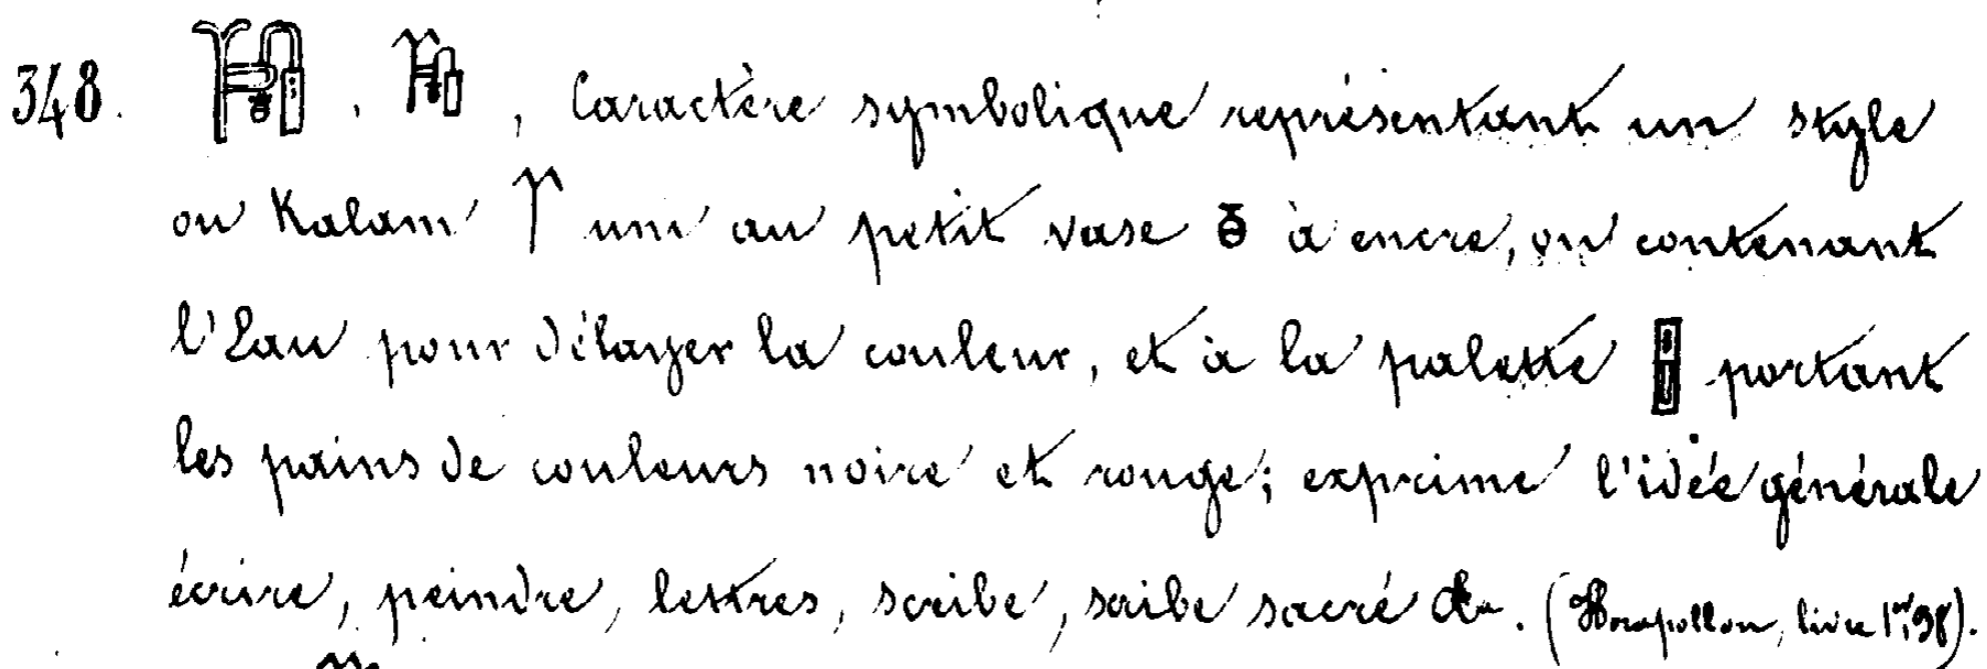 348. 𓏟, 𓏟, Caractère symbolique représentant un style
ou Kalam uni au petit vase à encre, ou contenant
l'Eau pour délayer la couleur, et à la palette portant
les pains de couleurs noire et rouge; exprime l'idée générale
écrire, peindre, lettres, scribe, scribe sacré &a. (Horapollon, livre 1er, 38).